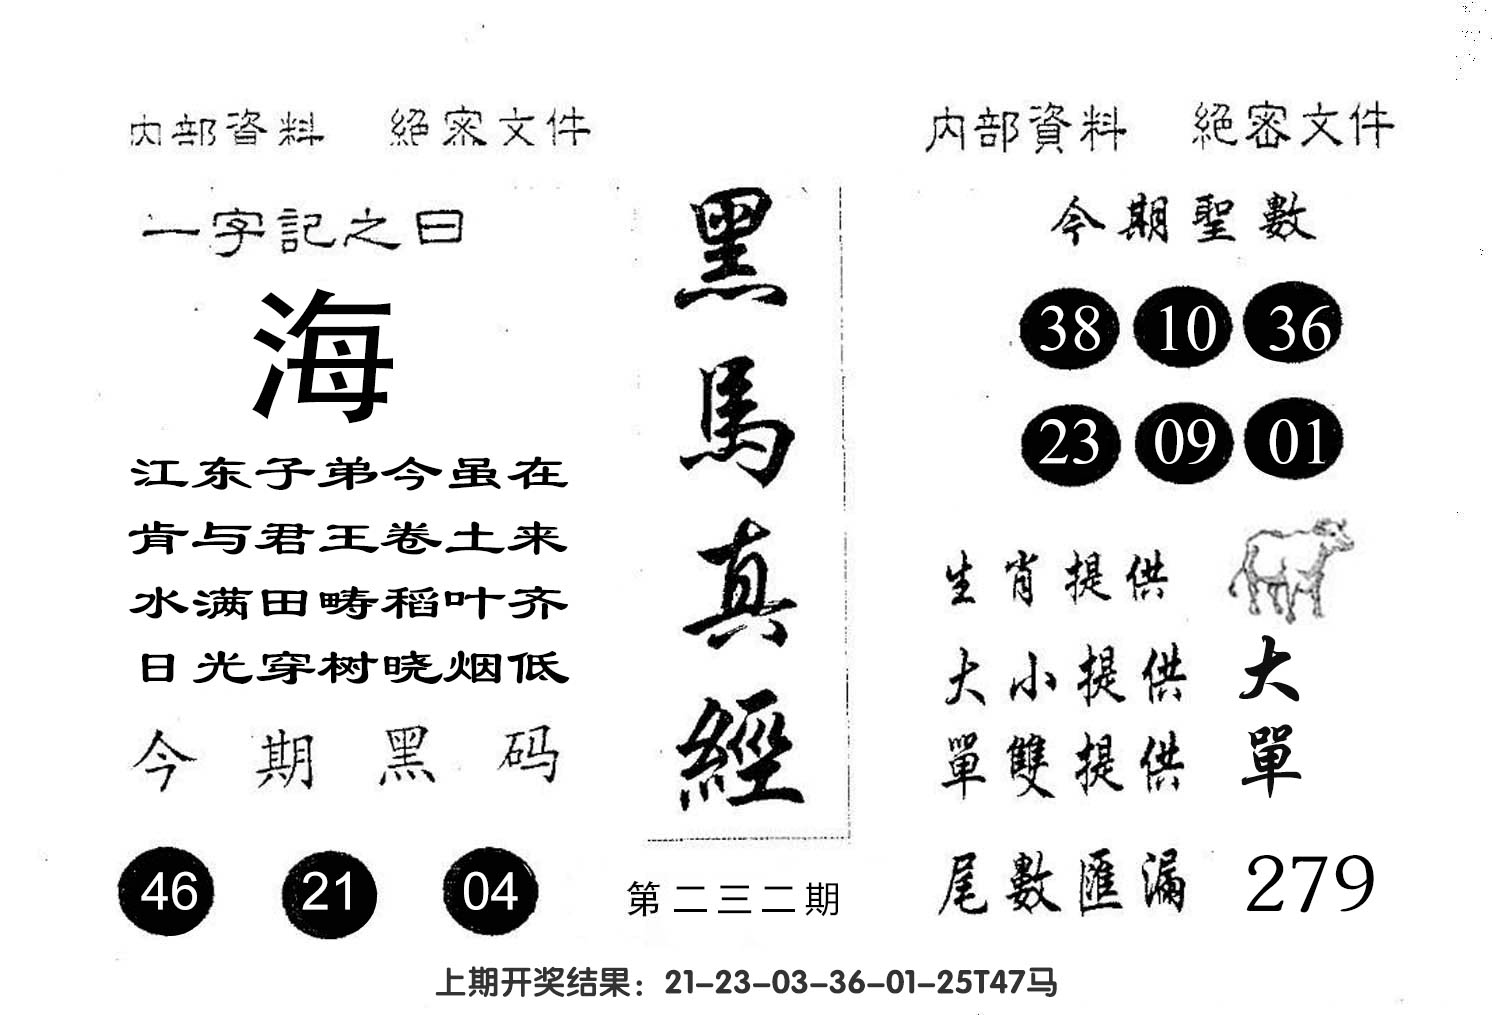 内部資料 絕密文件
一字記之曰
海
江东子弟今虽在
肯与君王卷土来
水满田畴稻叶齐
日光穿树晓烟低
今期黑码
46 21 04
黑馬真經
第二三二期
内部資料 絕密文件
今期聖數
38 10 36
23 09 01
生肖提供
大小提供 大
單雙提供 單
尾數匯漏 279
上期开奖结果：21-23-03-36-01-25T47马